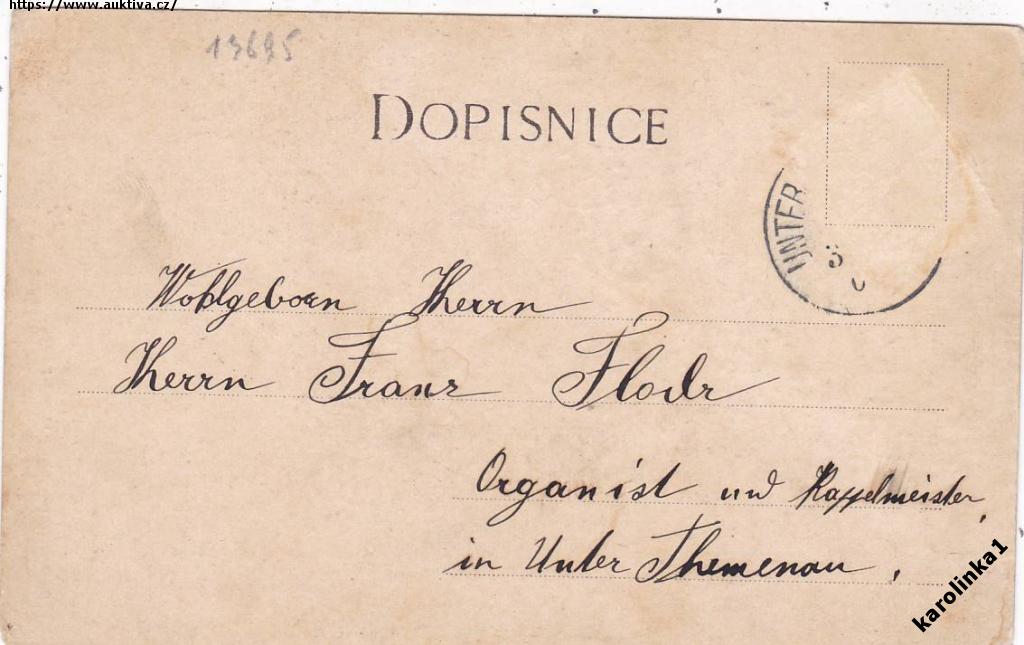 https://www.auktiva.cz/
13695
DOPISNICE
UNTER
3
Wohlgeborn Herrn
Herrn Franz Flodr
Organist und Kappelmeister,
in Unter Themenau,
karolinka1